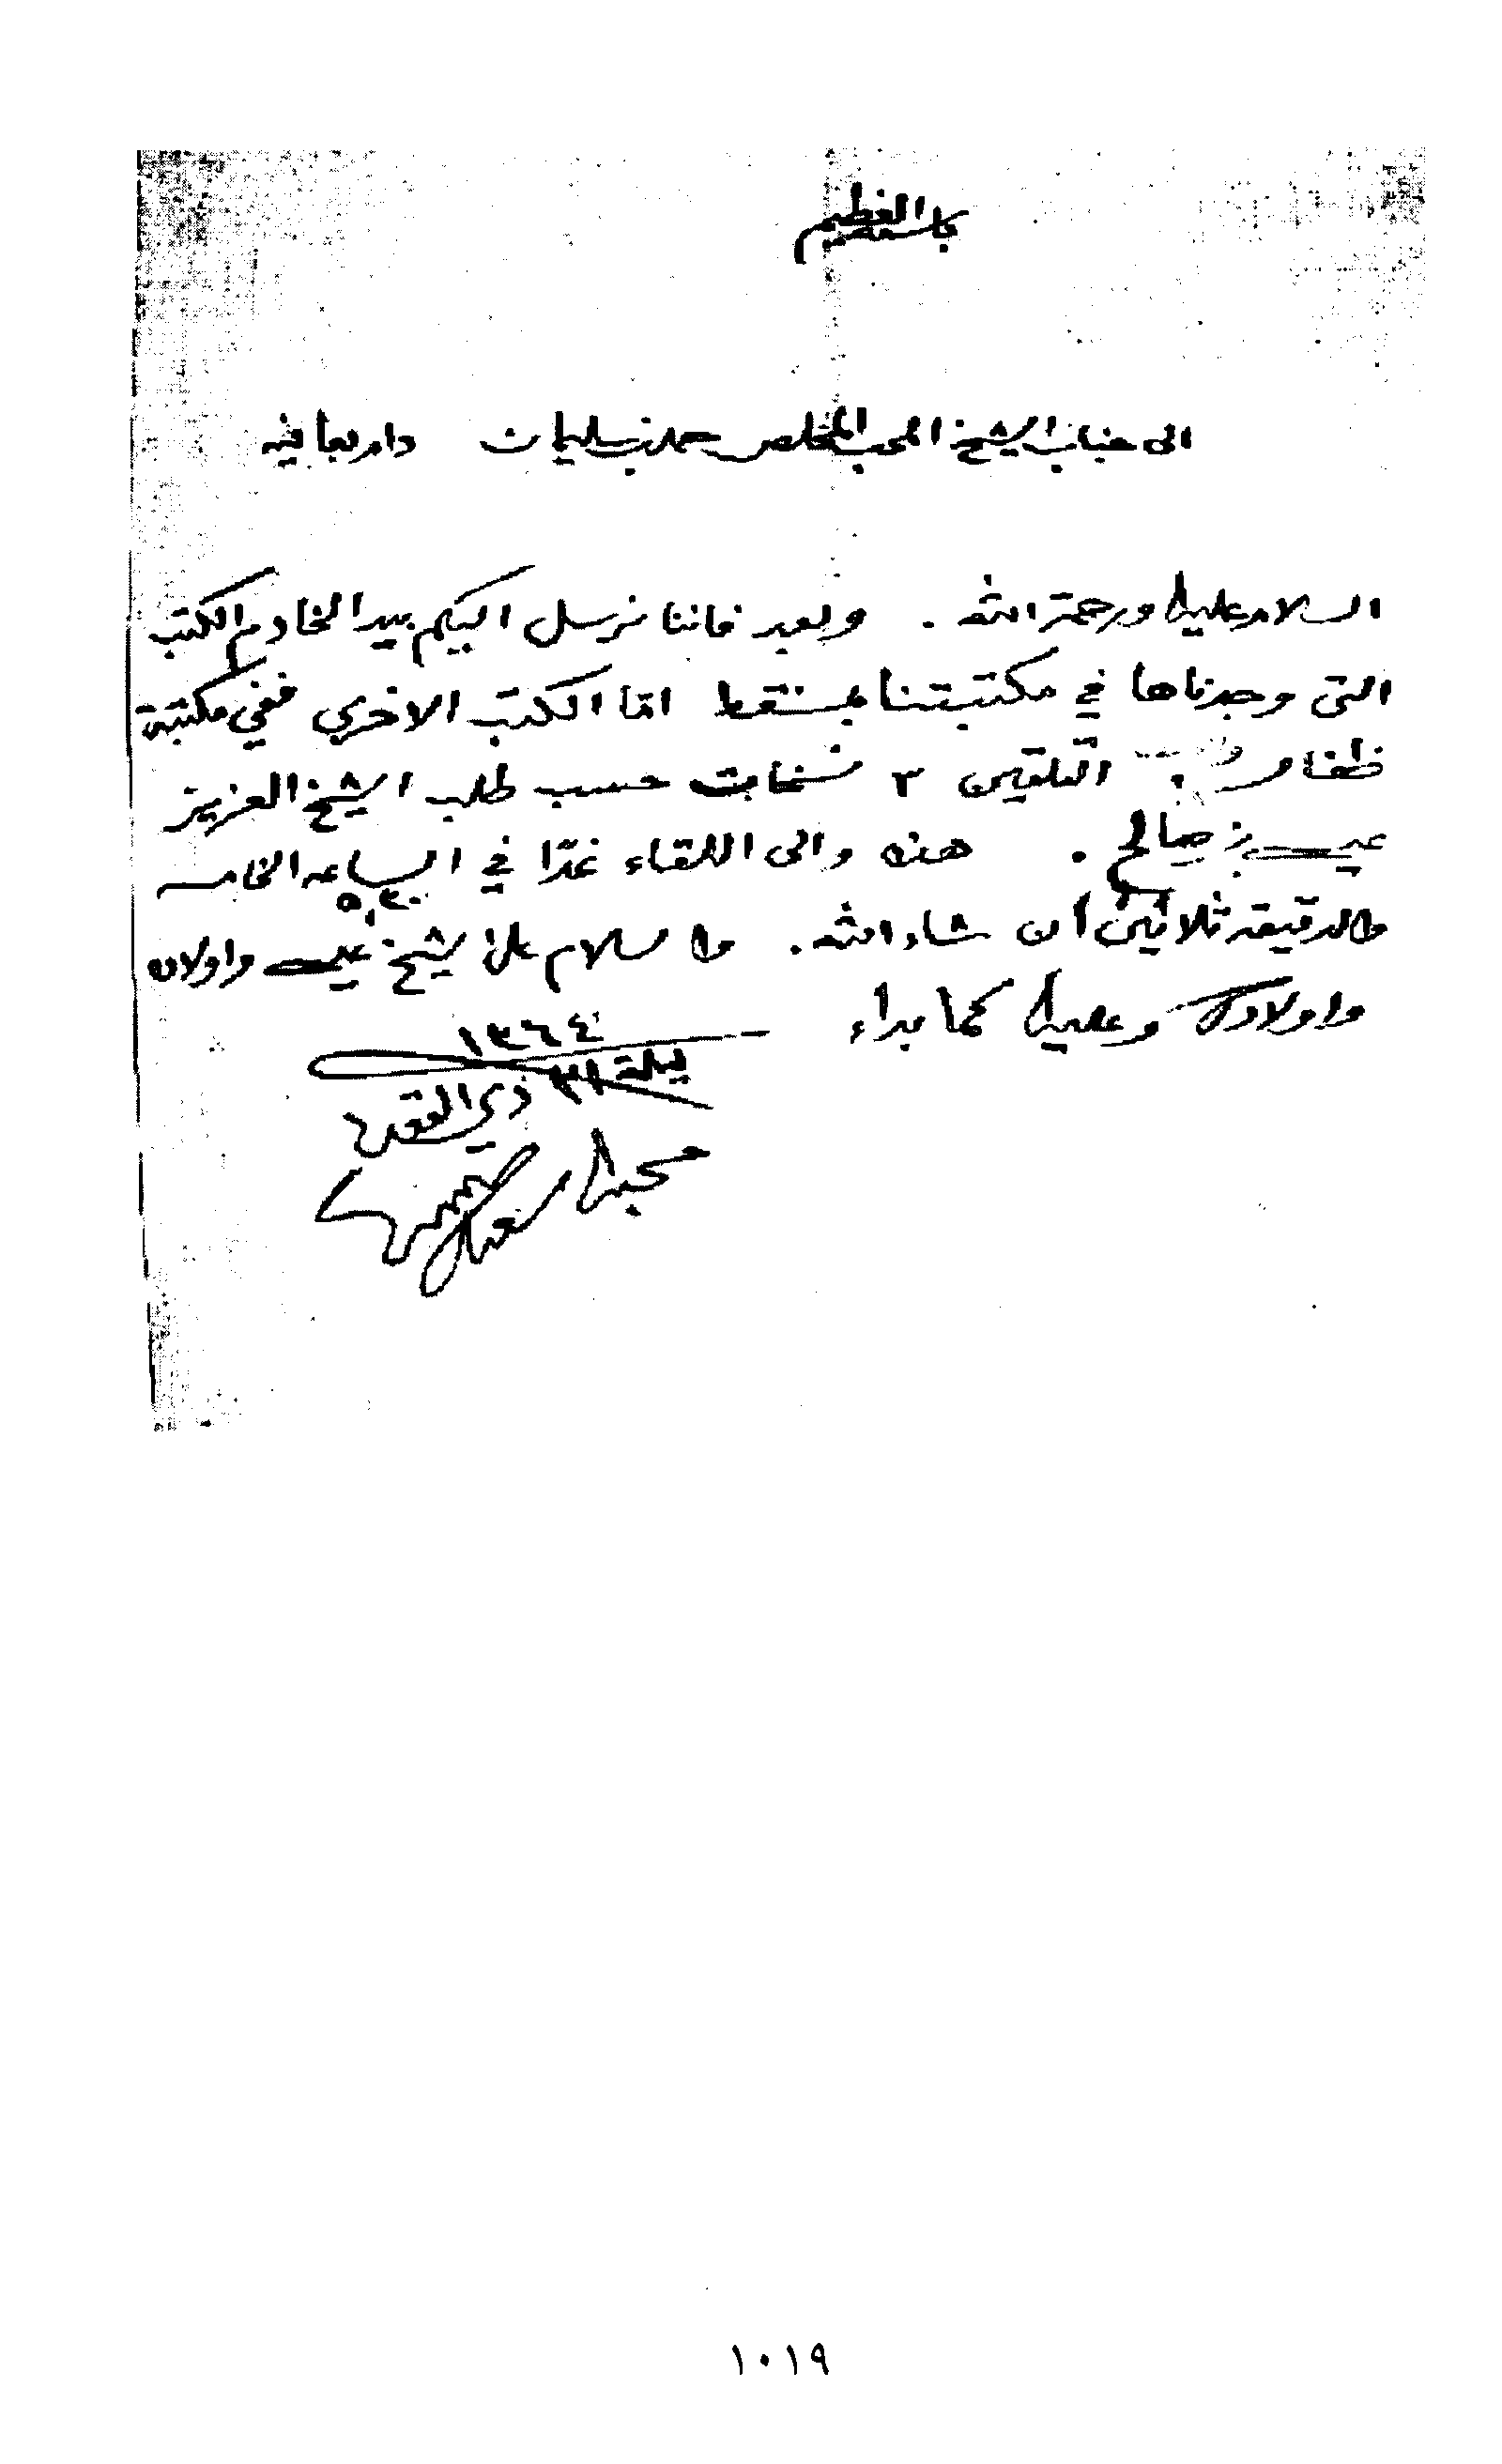 باسمه العظيم
الى جناب الشيخ المحب المخلص حمد بن سليمان دام بعافيه
السلام عليك ورحمة الله . وبعد فاننا نرسل اليكم بيد الخادم الكتب
التى وجدناها في مكتبتنا بمسقط امّا الكتب الاخرى ففي مكتبة
ظفار التلقين ٣ نسخات حسب طلب الشيخ العزيز
عيسى بن صالح . هذه والى اللقاء غدًا في الساعه الخامسه
٥,٣٠
والدقيقه ثلاثين أن شاء الله . والسلام على الشيخ عيسى واولاده
واولادك وعليك كما بداء
١٣٦٤
ليلة ٢١ ذي القعده
محبك سعيد
١٠١٩